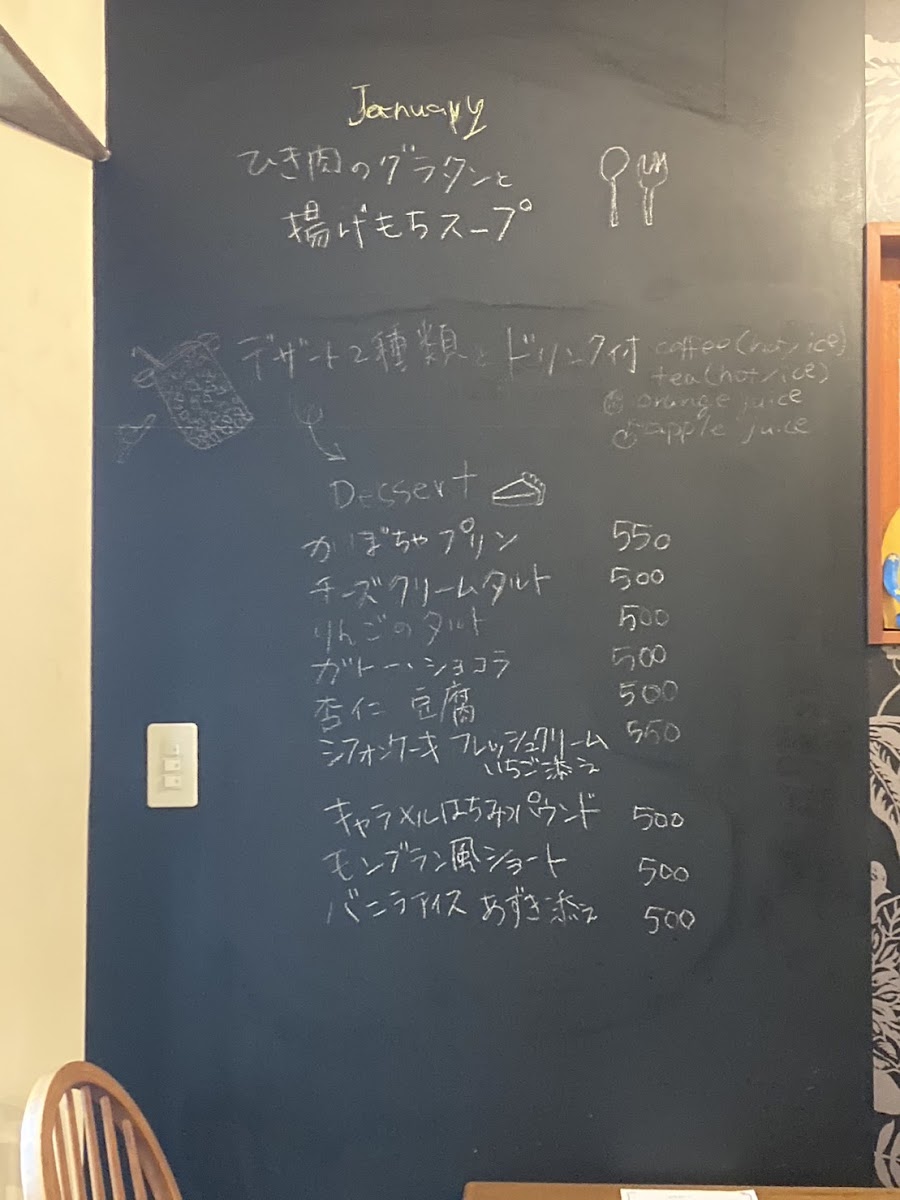 January
ひき肉のグラタンと
揚げもちスープ
デザート2種類とドリンク付
coffee(hot/ice)
tea(hot/ice)
orange juice
apple juice
Dessert
かぼちゃプリン 550
チーズクリームタルト 500
りんごのタルト 500
ガトー・ショコラ 500
杏仁 豆腐 500
シフォンケーキ フレッシュクリーム 550
いちご添え
キャラメルはちみつパウンド 500
モンブラン風ショート 500
バニラアイス あずき添え 500